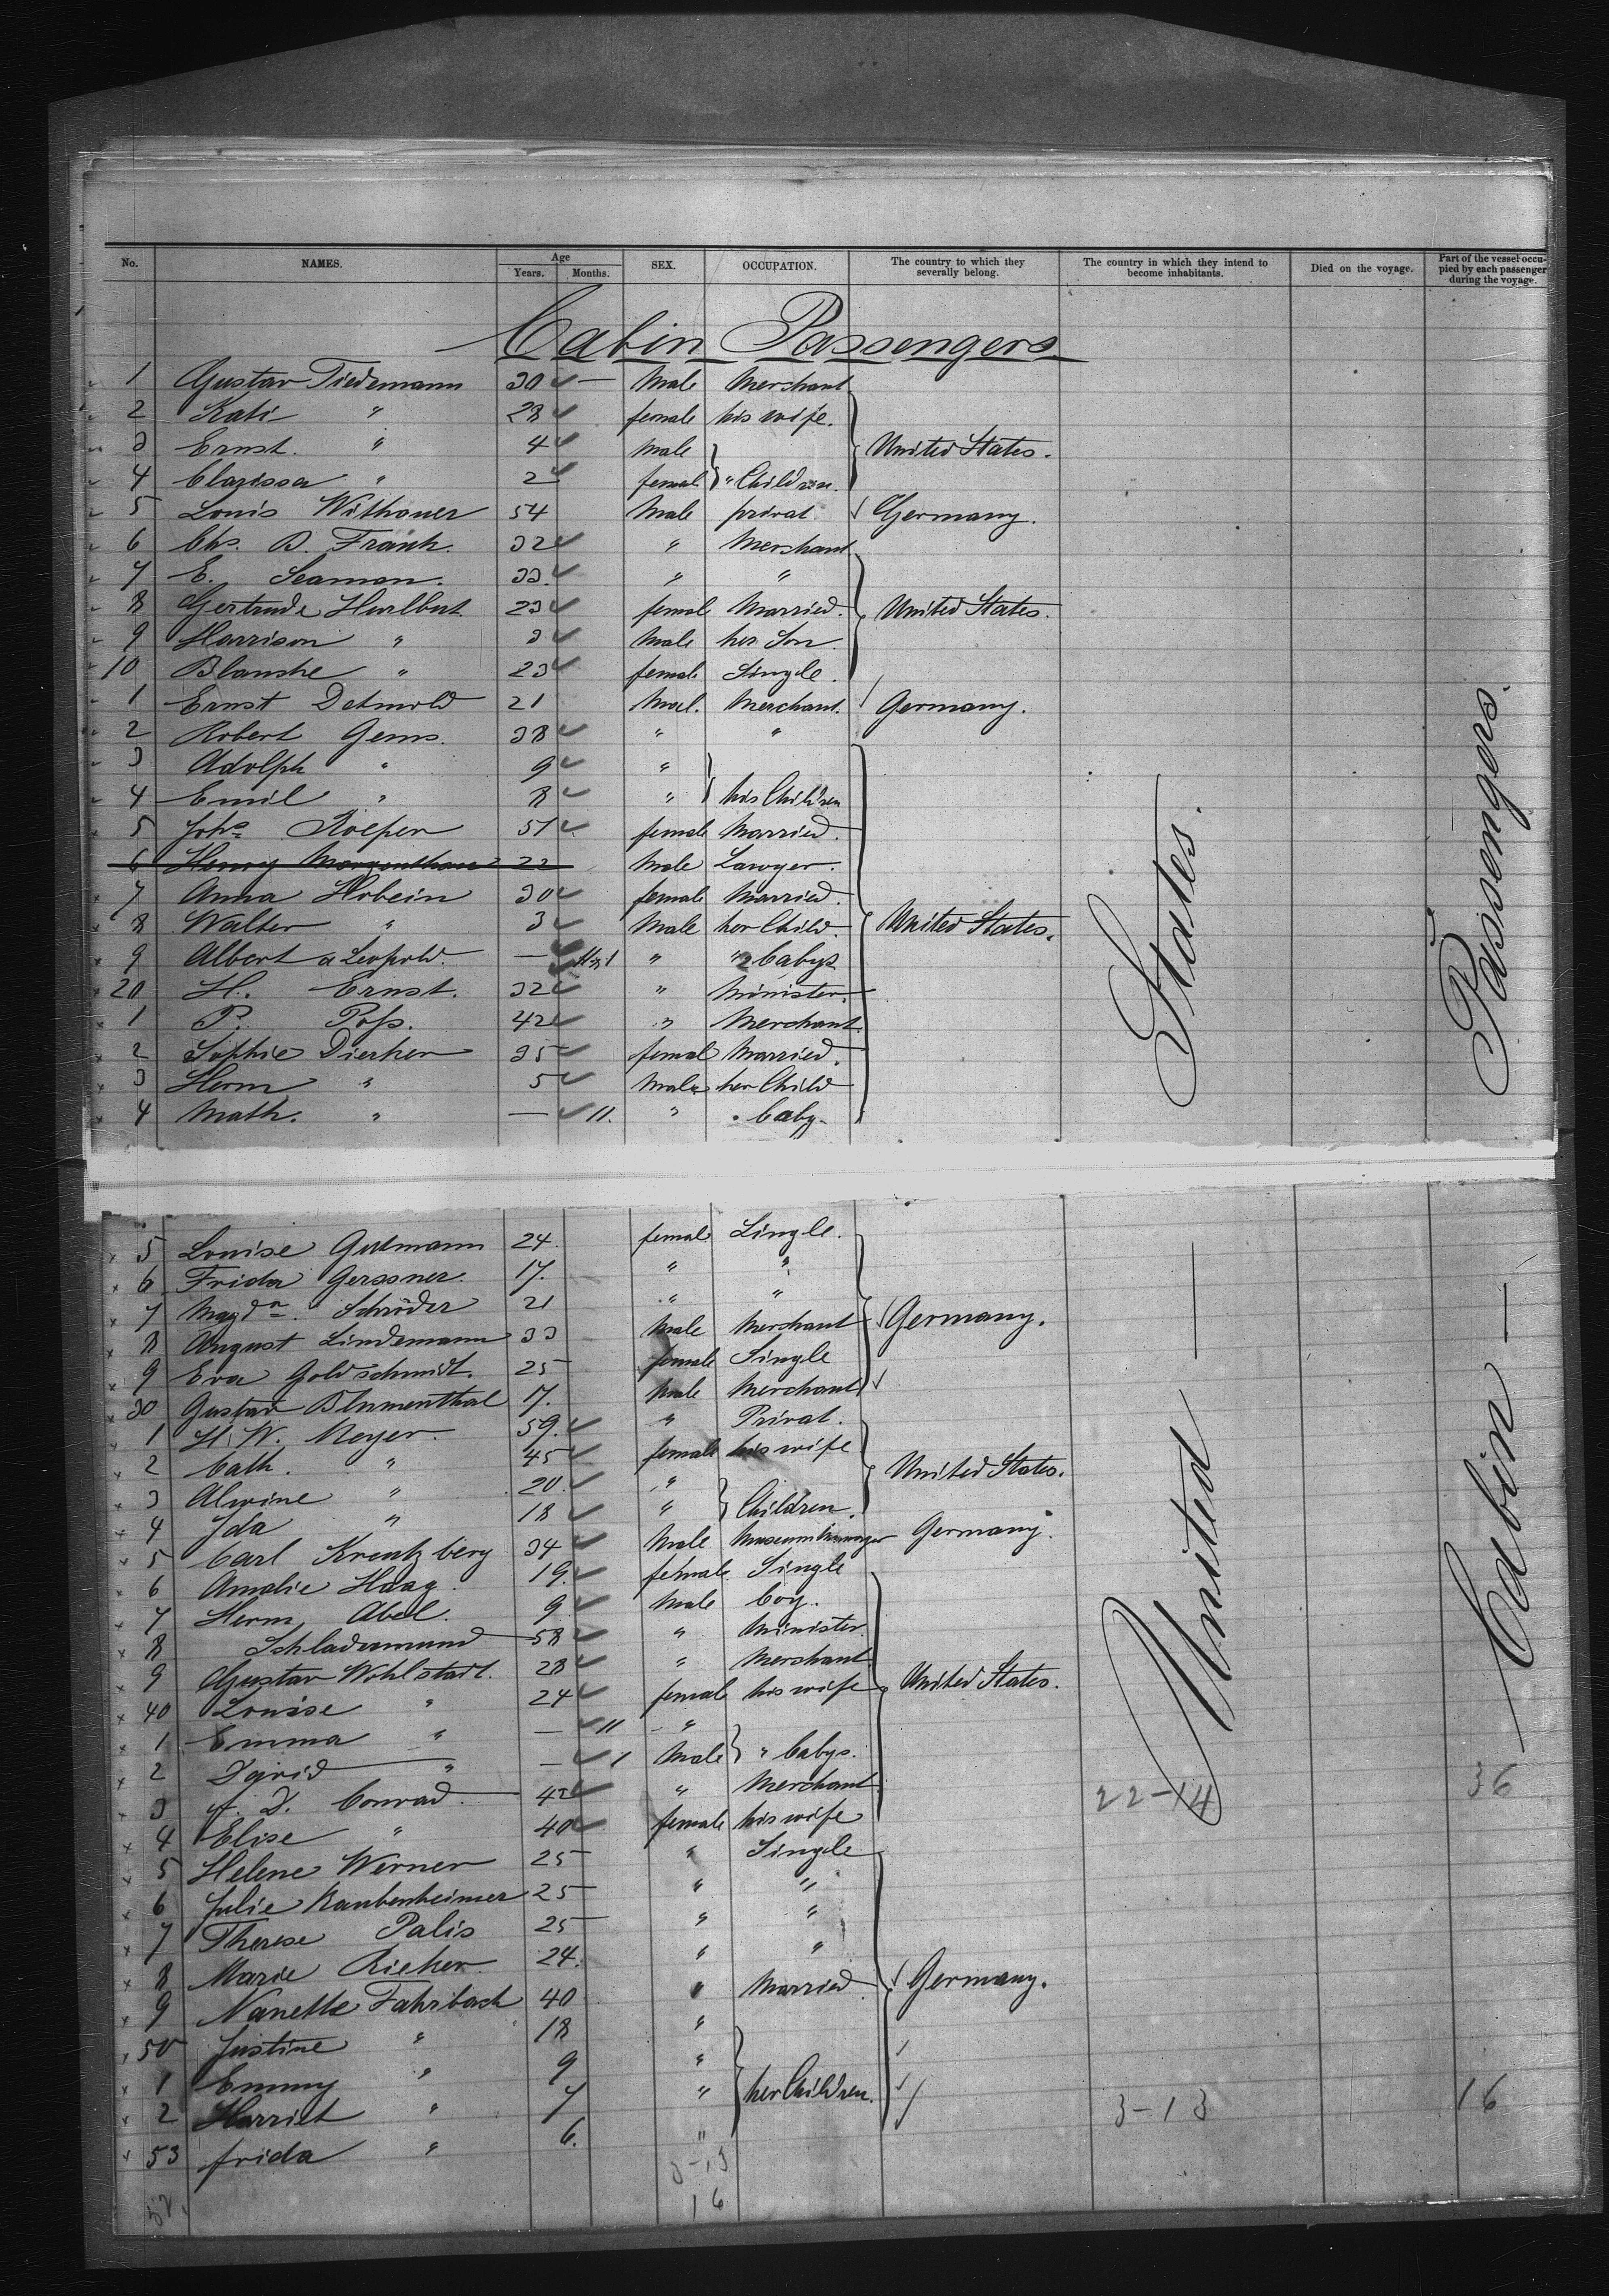 No. NAMES. Age Years. Months. SEX. OCCUPATION. The country to which they severally belong. The country in which they intend to become inhabitants. Died on the voyage. Part of the vessel occupied by each passenger during the voyage.
Cabin Passengers
1 Gustav Tiedemann 30 — Male Merchant
2 Kati " 28 female his wife.
3 Ernst. " 4 Male United States.
4 Clarissa " 2 female " Children.
5 Louis Withauer 54 Male privat Germany.
6 Chs. B. Frank. 32 " Merchant
7 E. Seaman. 33. " "
8 Gertrude Hurlbut 23 femal Married. United States.
9 Harrison " 3 Male her Son.
10 Blanche " 23 female Single.
1 Ernst Detmold 21 Mal. Merchant. Germany.
2 Robert Gems. 38 " "
3 Adolph " 9 "
4 Emil " 8 " his Children
5 Johs Kolper 51 female Married.
6 Henry Morgenthau 22 Male Lawyer.
7 Anna Hobein 30 female Married.
8 Walter " 3 Male her Child. United States.
9 Albert a Leopold. — " " 2 babys
20 H. Ernst. 32 " Minister.
1 P. Poss. 42 " Merchant
2 Sophie Dierker 35 femal Married.
3 Herm " 5 Male her Child
4 Math. " — 11. " " baby.
5 Louise Gutmann 24. female Single.
6 Frida Gerssner. 17. " "
7 Magda. Schröder 21 " " Germany.
8 August Lindemann 33 Male Merchant
9 Eva Goldschmidt. 25 female Single
30 Gustav Blumenthal 17. Male Merchant
1 H. W. Meyer. 59. " Privat.
2 Cath. " 45 female his wife United States.
3 Alwine " 20. "
4 Ida " 18 " Children.
5 Carl Kreutzberg 34 Male Museum Manager Germany.
6 Amalie Haag. 19. female Single
7 Herm Abel. 9 Male boy.
8 Schladermund 58 " Minister.
9 Gustav Wohlstadt. 28 " Merchant United States.
40 Louise " 24 female his wife
1 Emma " — 11 "
2 David " — 1 Male " babys.
3 A. D. Conrad. 42 " Merchant
4 Elise " 40 female his wife
5 Helene Werner 25 " Single
6 Julie Raubenheimer 25 " "
7 Therese Palis 25 " "
8 Marie Rieker. 24. " "
9 Nanette Fahrbach 40 " Married. Germany.
50 Justine " 18 "
1 Emmy " 9 "
2 Harriet " 7 " her Children.
53 frida " 6. "
United States.
Cabin Passengers.
22-14 36
3-13 16
3-13
16
52